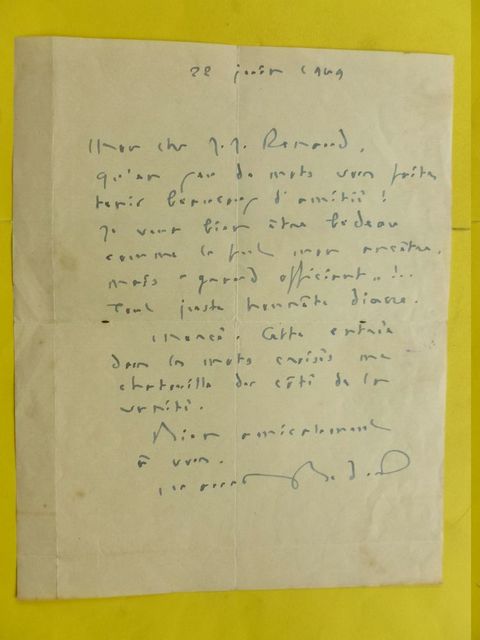 22 juin 1949
Mon cher J.J. Renaud,
qu'en peu de mots vous faites
tenir beaucoup d'amitié !
Je veux bien être bedeau
comme le fut mon ancêtre.
mais "grand officiant" !..
Tout juste honnête diacre.
Merci. Cette entrée
dans les mots croisés me
chatouille du côté de la
vanité.
Bien amicalement
à vous.